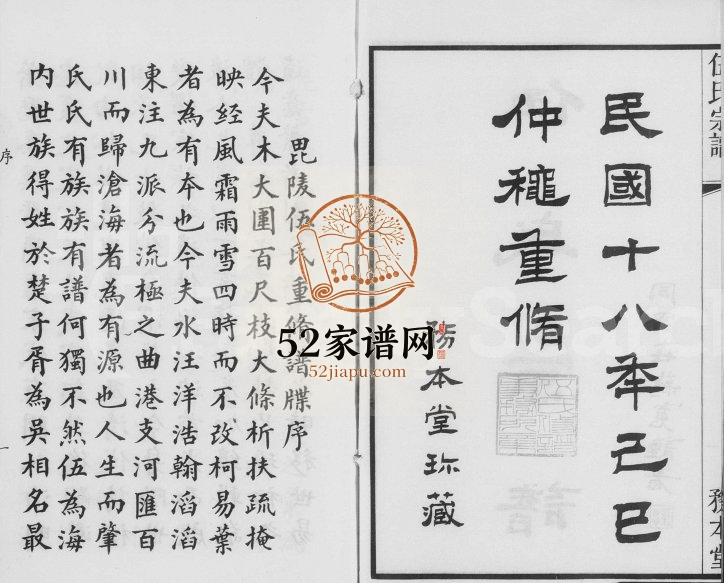 伍氏宗譜
豫本堂
民國十八年己巳
仲穐重脩
務本堂珎藏
毘陵伍氏重修譜牒序
今夫木大圍百尺枝大條析扶疏掩
映经風霜雨雪四時而不攺柯易葉
者為有夲也今夫水汪洋浩翰滔滔
東注九派分流極之曲港支河匯百
川而歸滄海者為有源也人生而肇
氏氏有族族有譜何獨不然伍為海
内世族得姓於楚子胥為吳相名最
序
一
52家谱网
52jiapu.com